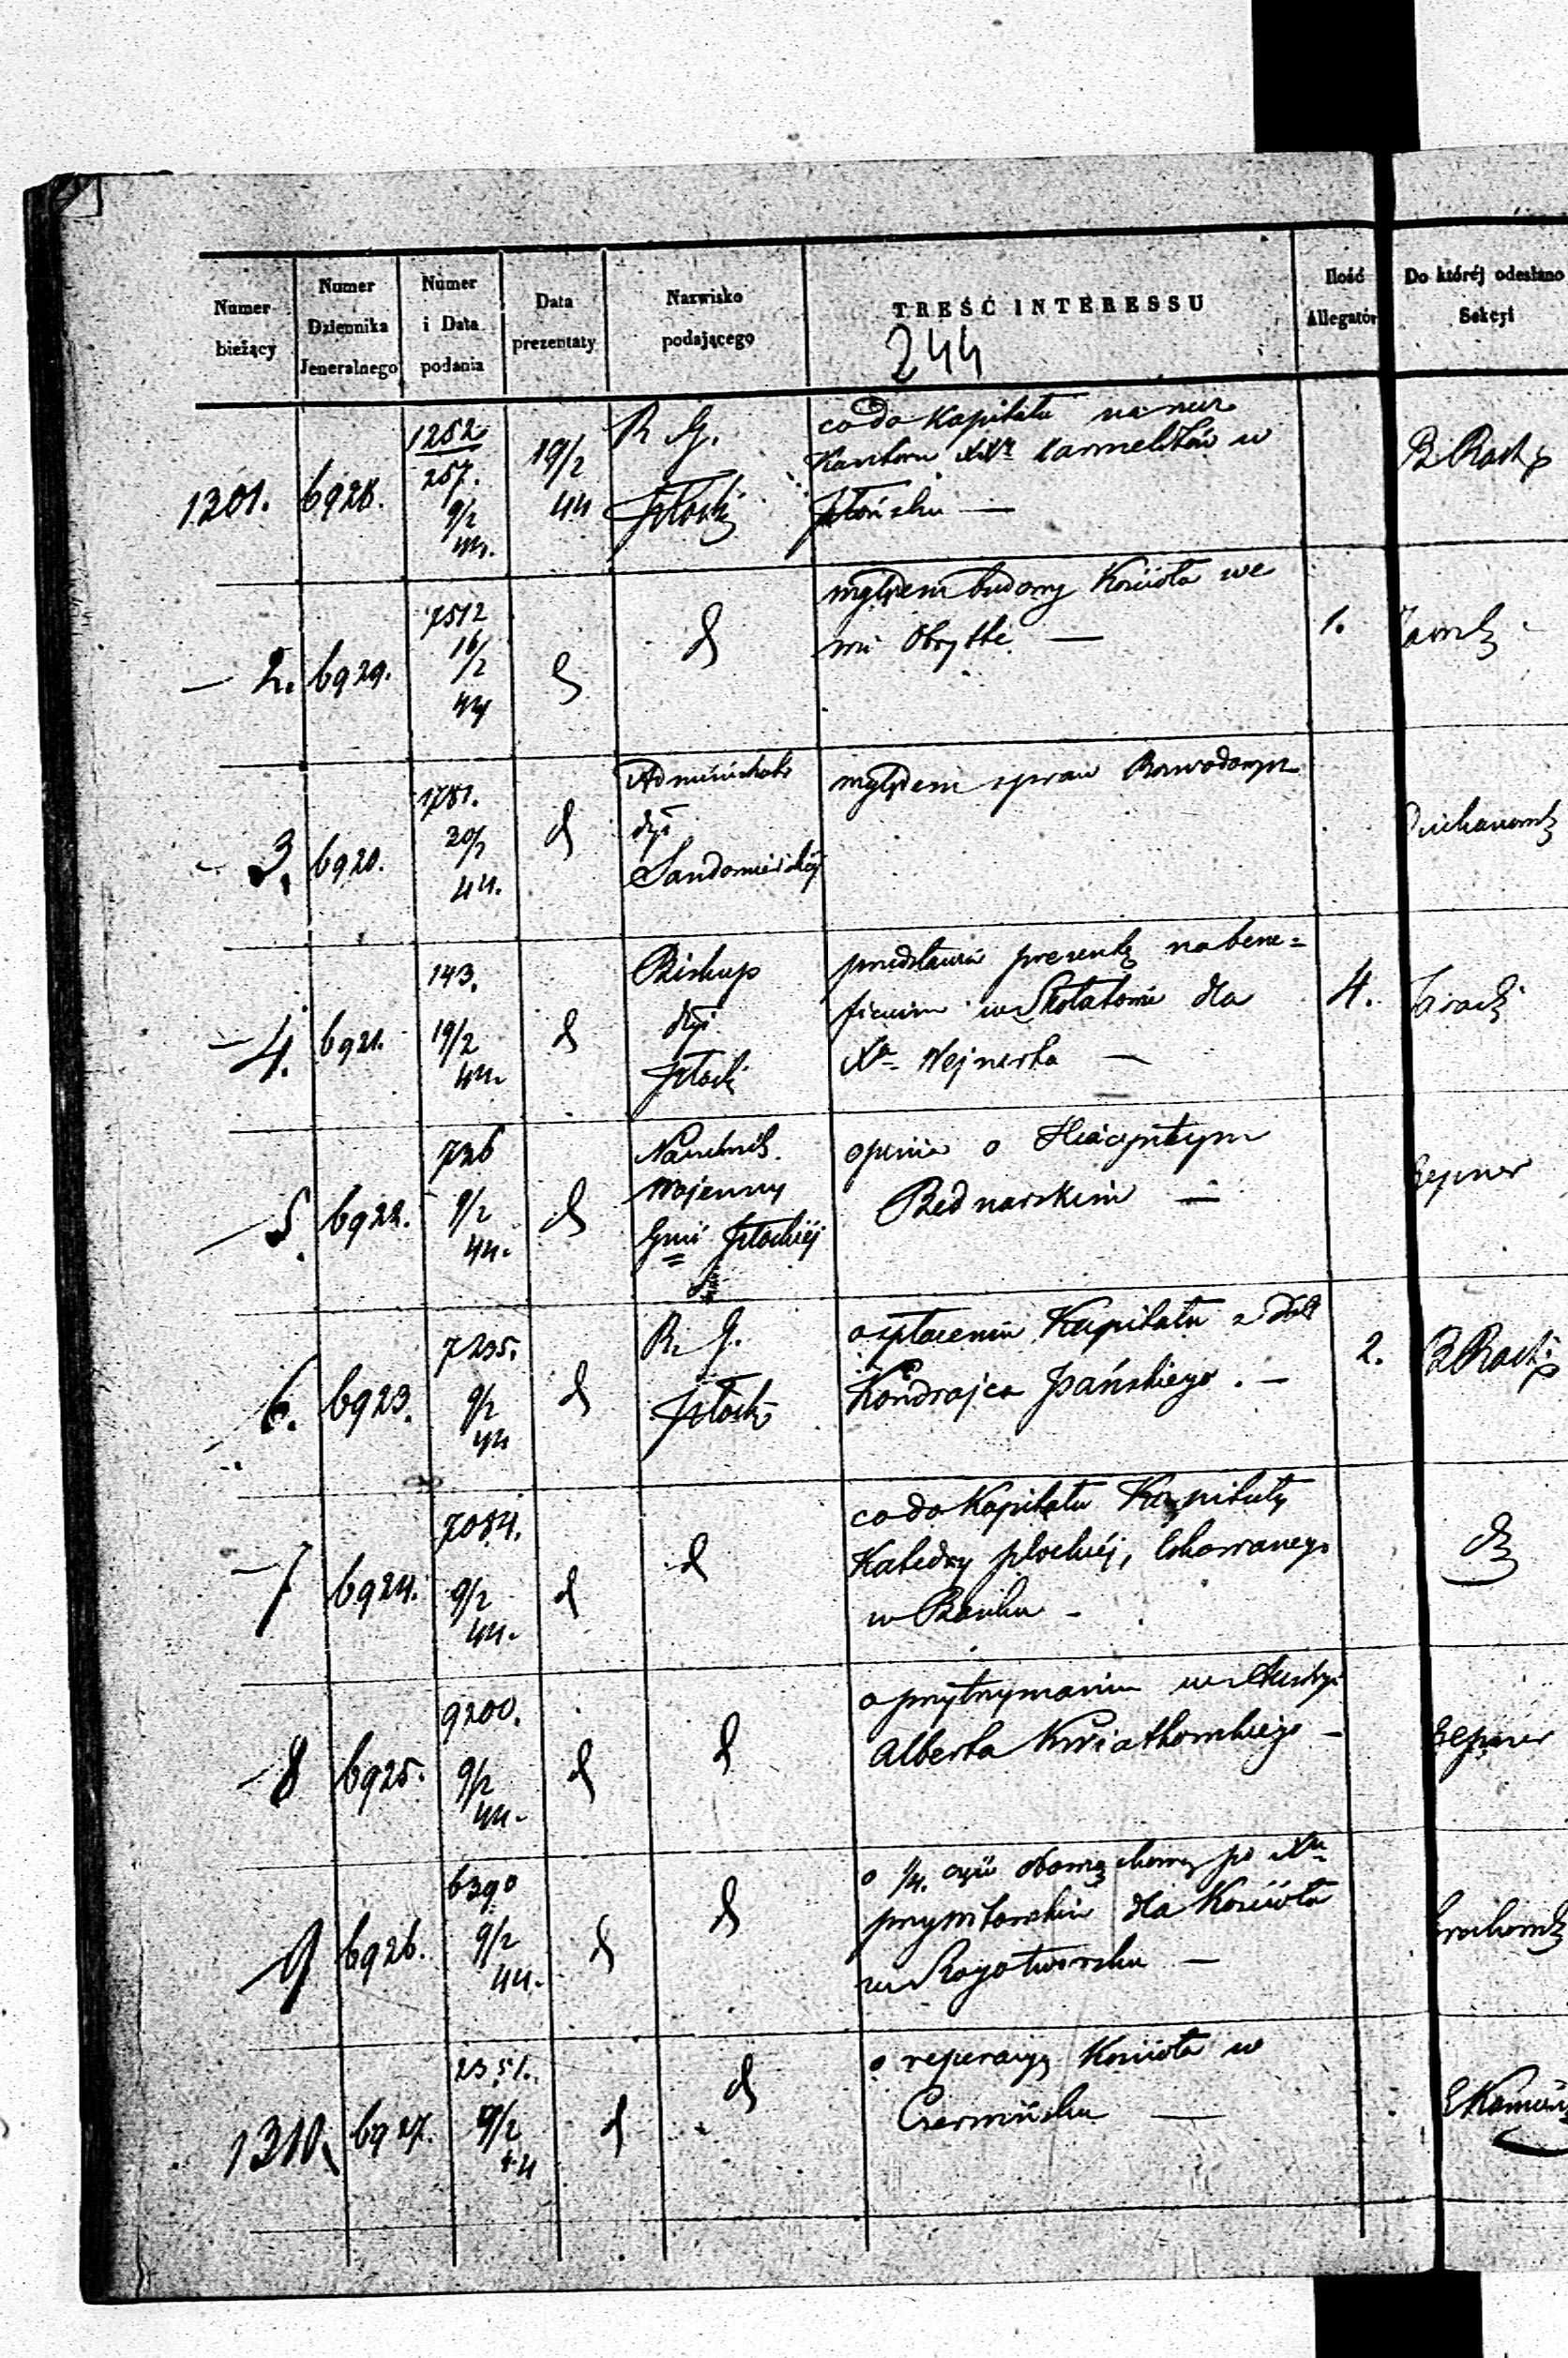 Numer bieżący
Numer Dziennika Jeneralnego
Numer i Data podania
Data prezentaty
Nazwisko podającego
TREŚĆ INTERESSU
Ilość Allegatów
Do której odesłano Sekcyi
244
1301. 6928. 1252 257. 9/2 44. 19/2 44
R. G.
Płocki
co do Kapitału na rzecz
Kantoru XX Karmelitów w
Płońsku —
B Rach
— 2. 6929. 7512 16/2 44
względem budowy Kościoła we
wsi Obrytte —
1.
- 3. 6920. 1781. 20/1 44.
Administrator
dyi
Sandomierskiej
względem spraw Rozwodowych
— 4. 6921. 143. 19/2 44
Biskup
dyi
Płocki
przedstawia prezentę na bene=
ficium w Skołatowie dla
Xa Wejnerta —
4.
— 5. 6922. 726 9/2 44.
Naczelnik
Wojenny
Gnii Płockiéj
opinia o Hiacyntym
Bednarskim —
Zepner
6. 6923. 7235. 9/2 44
R. G.
Płocki
o spłaceniu Kapitału z dóbr
Kondrajca Pańskiego. —
2.
B Rach
— 7 6924. 7084. 9/2 44.
co do Kapitału Kapituły
Katedry płockiéj, lokowanego
w Banku -
— 8 6925. 9200. 9/2 44.
o przytrzymaniu w Austryi
Alberta Kwiatkowskiego —
Zepner
— 9 6926. 6390 9/2 44.
o 1/4. części po Xu
dla Kościoła
w Rogotworsku —
1310. 6927. 2351. 9/2 44
o reperacyą Kościoła w
Czermińsku —